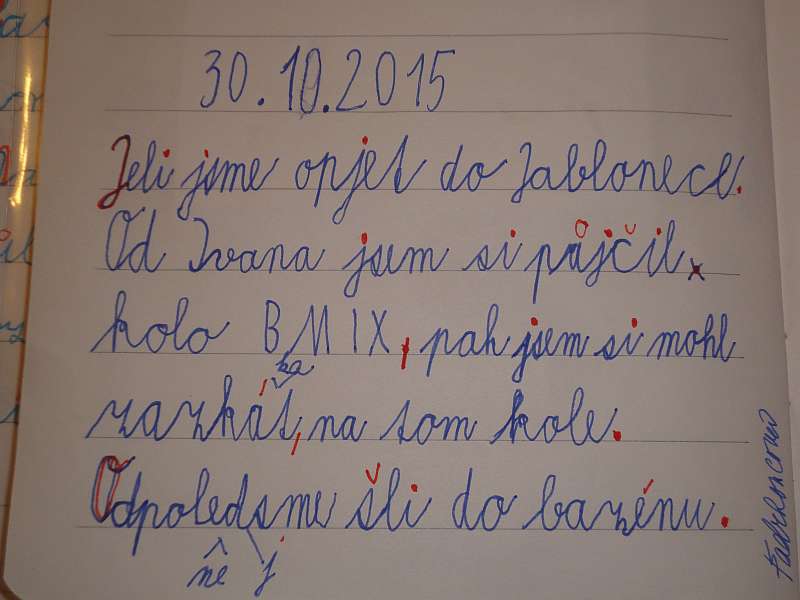 30.10.2015
Jeli jsme opjet do Jablonece.
Od Ivana jsem si půjčil
kolo BMIX, pak jsem si mohl
ska
zazkát, na tom kole.
Odpoledsme šli do bazénu.
ně j